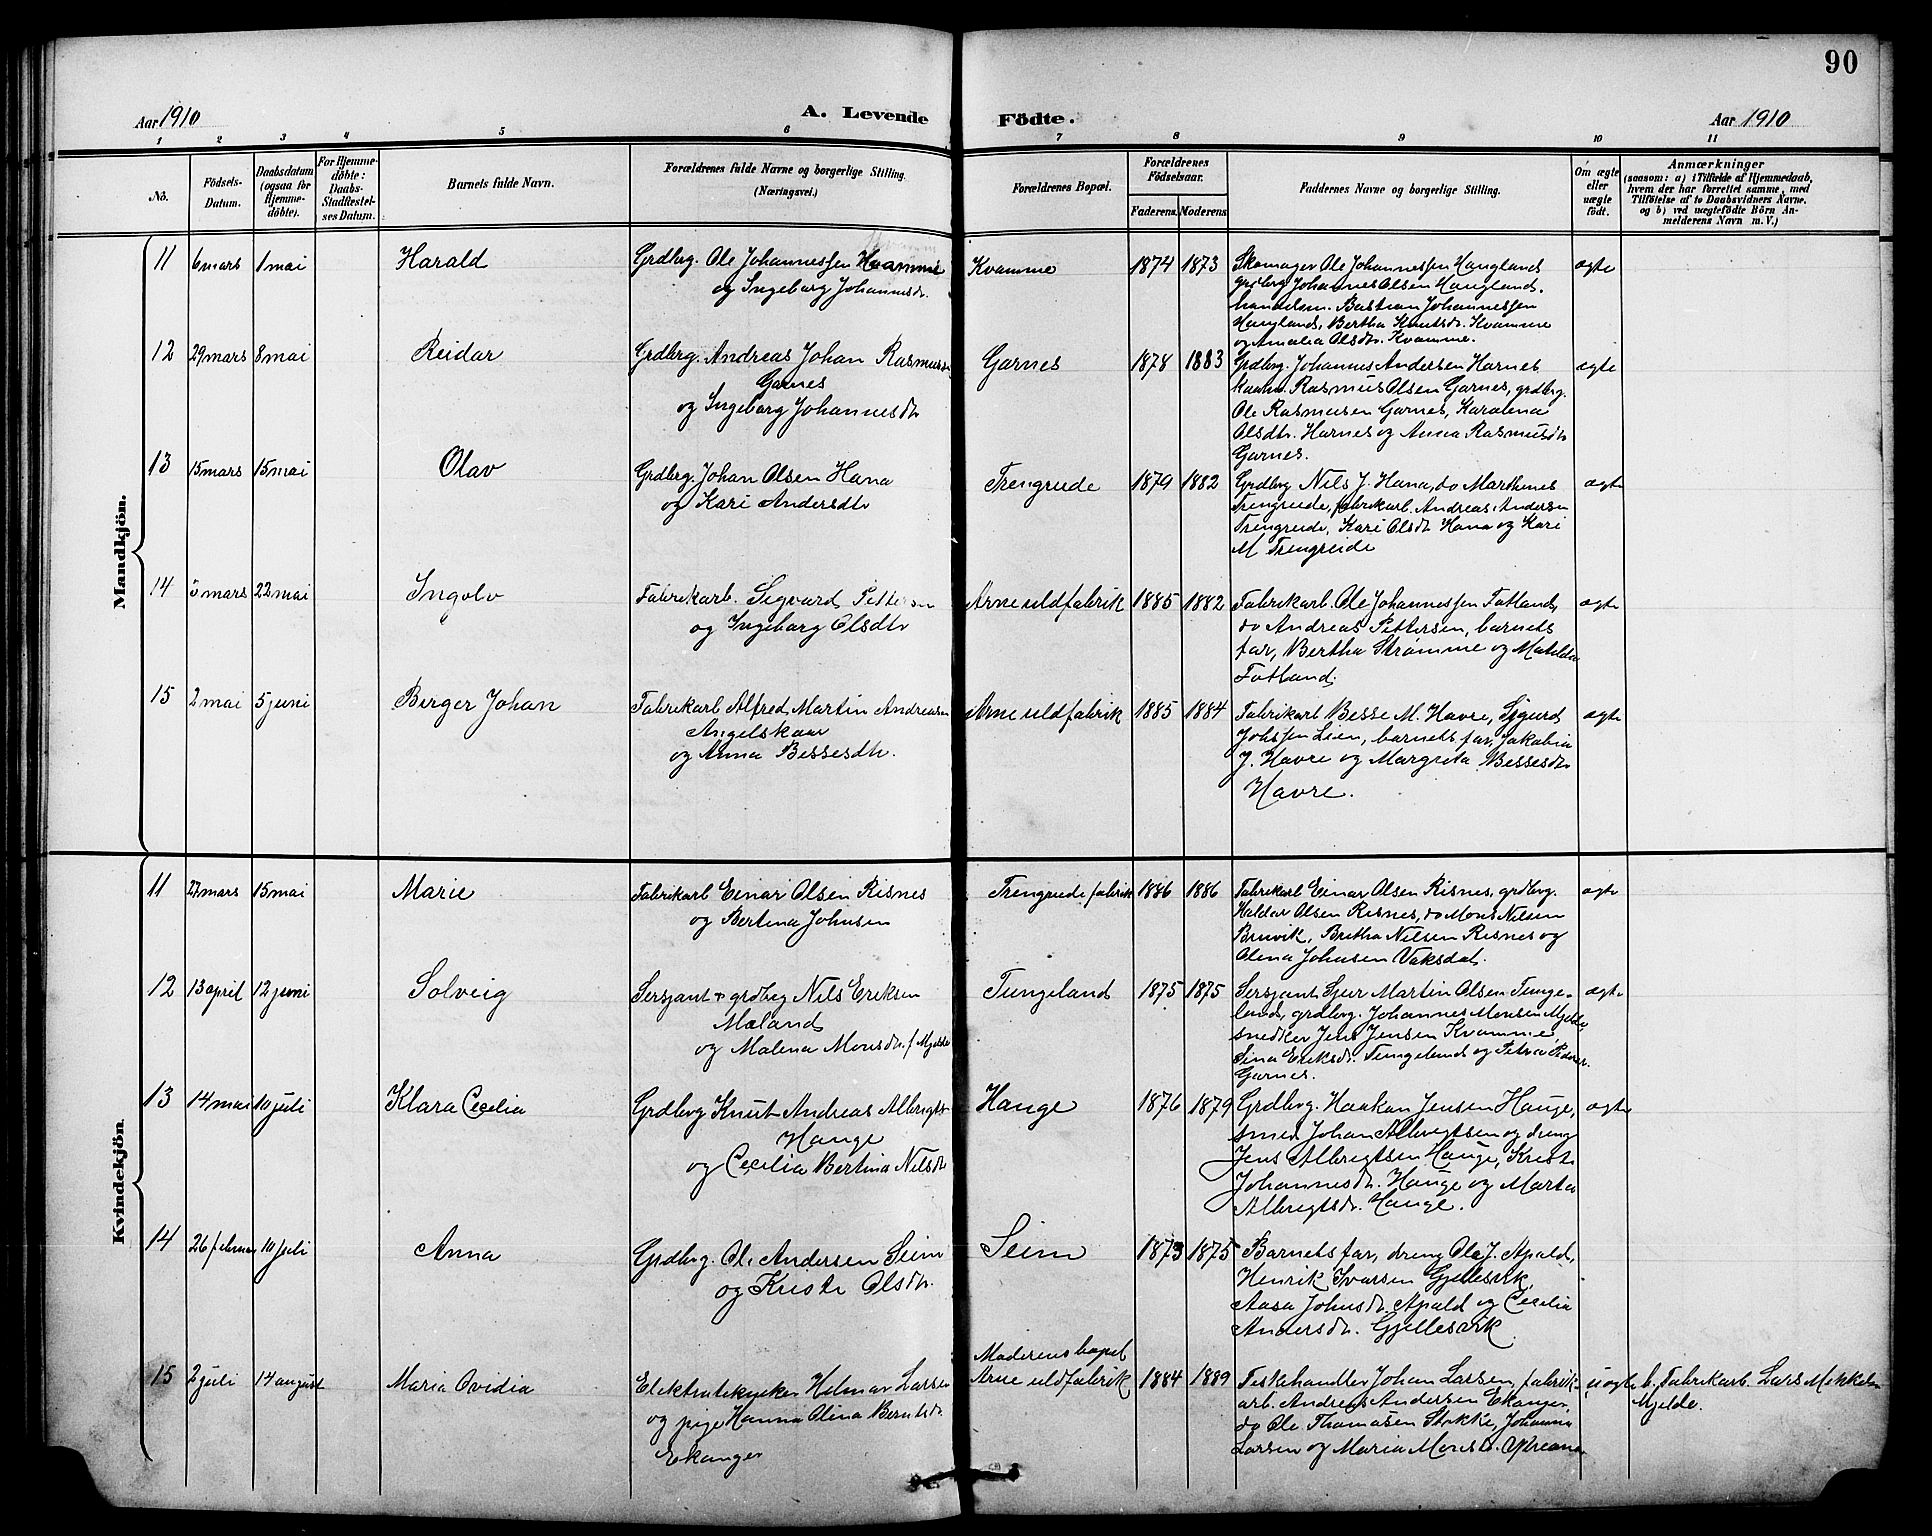 90
Aar 1910 A. Levende Födte. Aar 1910
1 2 3 4 5 6 7 8 9 10 11
No.
Födsels-
Datum.
Daabsdatum
(ogsaa for
Hjemme-
döbte).
For Hjemme-
döbte:
Daabs-
Stadfæstel-
ses Datum.
Barnets fulde Navn.
Forældrenes fulde Navne og borgerlige Stilling.
(Næringsvei.)
Forældrenes Bopæl.
Forældrenes
Födselsaar.
Faderens. Moderens.
Faddernes Navne og borgerlige Stilling.
Om ægte
eller
uægte
födt.
Anmærkninger
(saasom: a) i Tilfælde af Hjemmedaab,
hvem der har forrettet samme, med
Tilföielse af to Daabsvidners Navne,
og b) ved uægtefödte Börn An-
melderens Navn m. V.)
Mandkjön.
11 6 mars 1 mai Harald
Grdbrg. Ole Johannessen Kvamme
og Ingeborg Johannesdr.
Kvamme 1874 1873
Skomager Ole Johannessen Haugland
grdbrg Johannes Olsen Haugland.
handelsm. Bastian Johannessen
Haugland, Bertha Knutsdr. Kvamme
og Amalia Olsdtr. Kvamme.
ægte
12 29 mars 8 mai Reidar
Grdbrg. Andreas Johan Rasmussen
Garnes
og Ingeborg Johannesdtr
Garnes 1878 1883
Grdbrg. Johannes Andersen Harnes
Rasmus Olsen Garnes, grdbrg.
Ole Rasmusen Garnes, Karolena
Olsdtr. Harnes og Anna Rasmusdtr
Garnes.
ægte
13 15 mars 15 mai Olav
Grdbrg. Johan Olsen Hana
og Kari Andersdtr
Trengreide 1879 1882
Grdbrg Nils J. Hana, do Marthenes
Trengreide, fabrikarb. Andreas Andersen
Trengreide, Kari Olsdtr Hana og Kari
M. Trengreide
ægte
14 5 mars 22 mai Ingolv
Fabrikarb. Sigvard Pettersen
og Ingeborg Olsdtr
Arne uldfabrik 1885 1882
Fabrikarb. Ole Johannessen Totland,
do Andreas Pettersen, barnets
far, Bertha Strømme og Matilda
Totland.
ægte
15 2 mai 5 juni Birger Johan
Fabrikarb Alfred Martin Andreasen
Angelskaar
og Anna Bessesdtr.
Arne uldfabrik 1885 1884
Fabrikarb Besse M. Havre, Sigurd
Johssen Lien, barnets far, Jakobia
J. Havre og Margreta Bessesdtr
Havre.
ægte
Kvindekjön.
11 27 mars 15 mai Marie
Fabrikarb Einar Olsen Risnes
og Bertina Johnsen
Trengreide fabrik 1886 1886
Fabrikarb Einar Olsen Risnes, grdbrg.
Haldor Olsen Risnes, do Mons Nilsen
Bruvik, Britha Nilsen Risnes og
Olena Johnsen Vaksdal.
ægte
12 13 april 12 juni Solveig
Sersjant + grdbrg Nils Eriksen
Mæland
og Malena Monsdr. f Mjelde
Tungeland 1875 1875
Sersjant Sjur Martin Olsen Tunge-
land, grdbrg. Johannes Monsen Mjelde
snedker Jens Jensen Kvamme
Sina Eriksdr. Tungeland og Petra Peder
Garnes.
ægte
13 14 mai 10 juli Klara Cecilia
Grdbrg Knut Andreas Albrigts
Hauge
og Cecilia Bertina Nilsdtr
Hauge 1876 1879
Grdbrg. Haakon Jensen Hauge,
smed Johan Albregtsen og dreng
Jens Albregtsen Hauge, Kristi
Johannesdr. Hauge og Marta
Albregtsdr. Hauge.
ægte
14 26 februar 10 juli Anna
Grdbrg. Ole Andersen Seim
og Kristi Olsdtr.
Seim 1873 1875
Barnets far, dreng Ole J. Apald,
Henrik Ivarsen Gjellesvik,
Aasa Johnsdr. Apald og Cecilia
Andersdr. Gjellesvik.
15 2 juli 14 august Maria Ovidia
Elektrotekniker Hilmar Larsen
og pige Hanna Olina Berntsdr.
Ekanger
Moderens bopel
Arne uldfabrik 1884 1889
Fiskehandler Johan Larsen, fabrik-
arb. Andreas Andersen Ekanger,
do Ole Thomasen Stokke, Johanna
Larsen og Maria Monsdr.
uægte
b. Fabrikarb. Lars Mikkelsen
Mjelde.